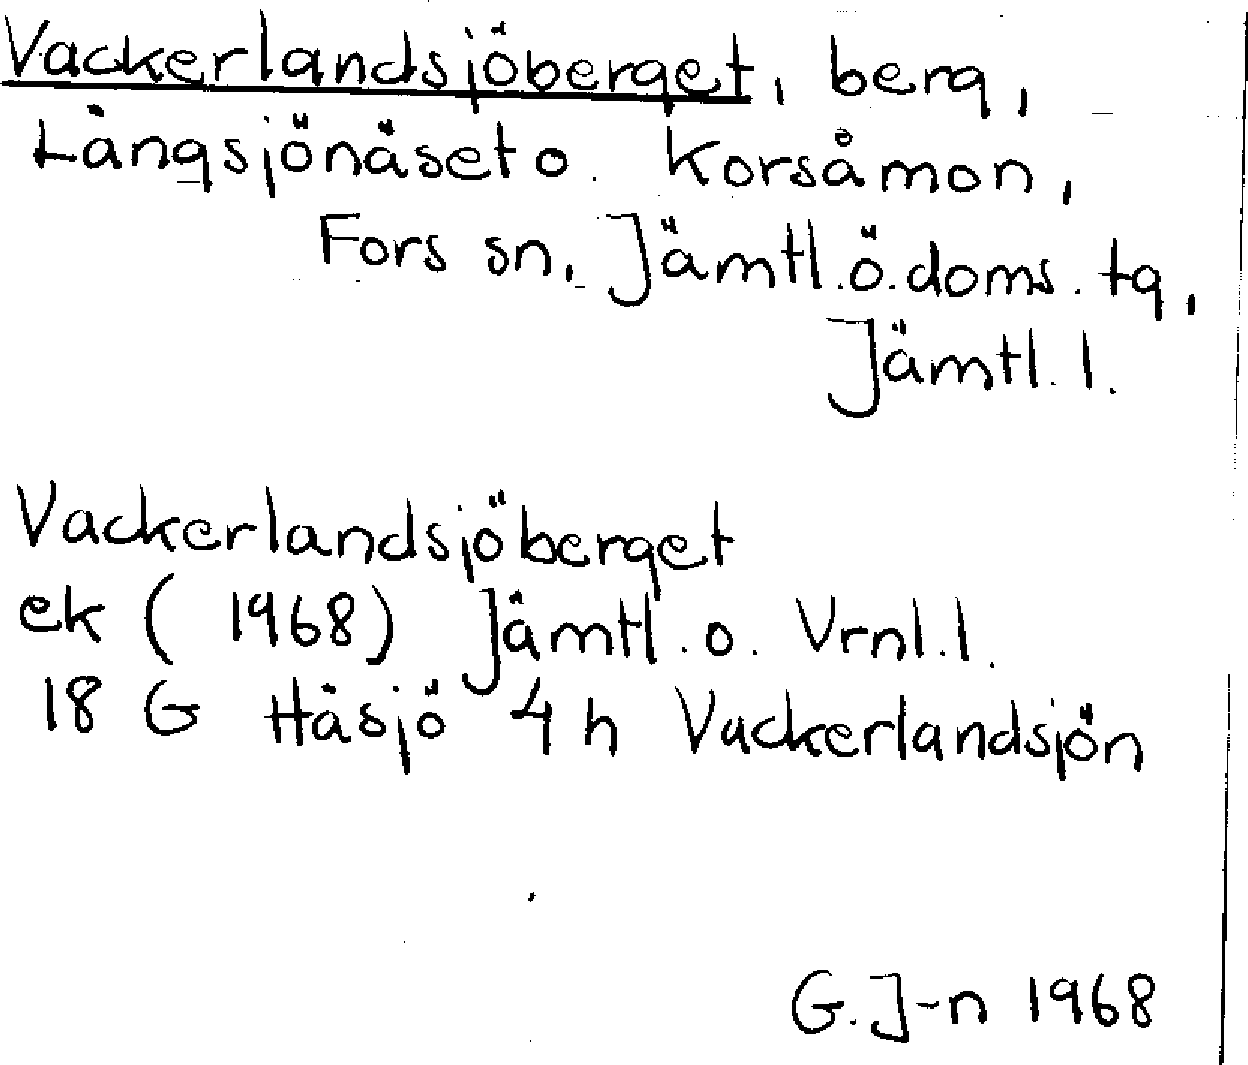 Vackerlandsjöberget, berg,
Långsjönäset o. Korsåmon,
Fors sn, Jämtl.ö.doms.tg,
Jämtl.l.
Vackerlandsjöberget
ek (1968) Jämtl.o. Vrnl.l.
18 G Håsjö 4 h Vackerlandsjön
G.J-n 1968